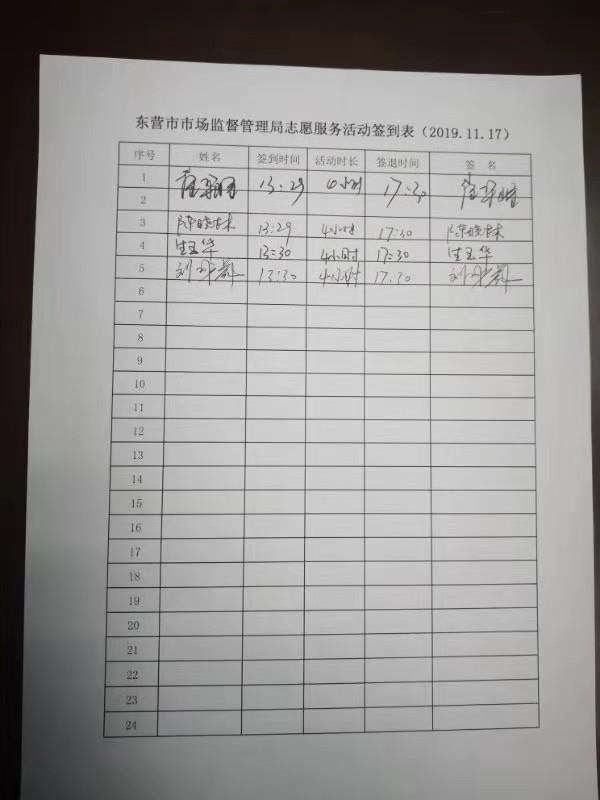 东营市市场监督管理局志愿服务活动签到表（2019.11.17）
序号 姓名 签到时间 活动时长 签退时间 签 名
1 13:29 4小时 17:30
2
3 陈晓林 13:29 4小时 17:30 陈晓林
4 生玉华 13:30 4小时 17:30 生玉华
5 13:30 4小时 17:30
6
7
8
9
10
11
12
13
14
15
16
17
18
19
20
21
22
23
24